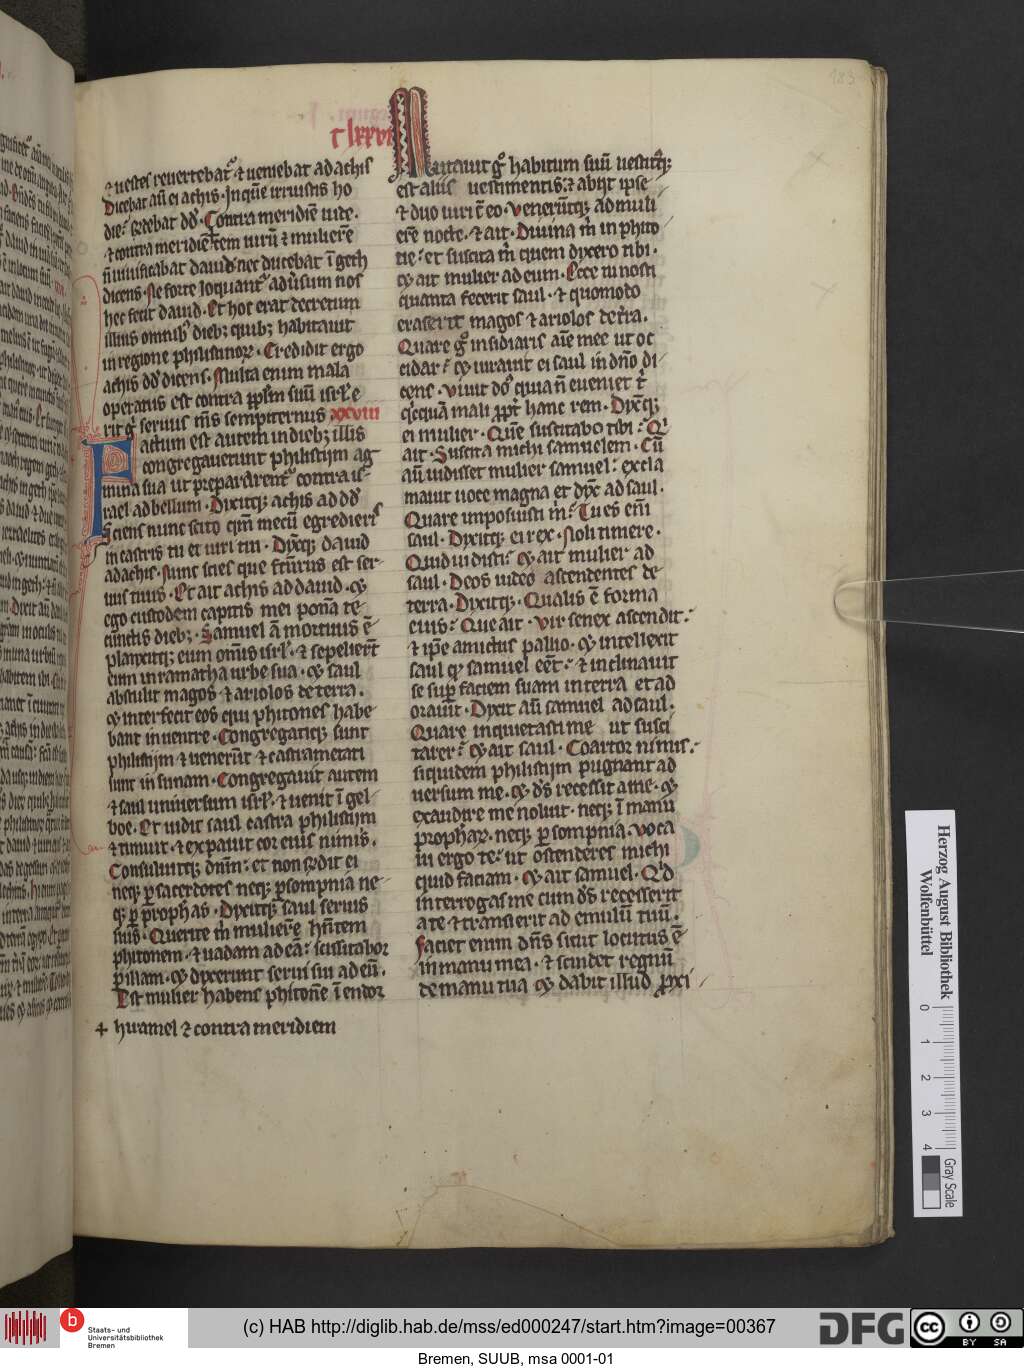 183
⁊ uestes reuertebat᷑ ⁊ ueniebat ad achis
Dicebat aũ ei achis · In quẽ irruistis ho
die · Rñdebat dđ · Contra meridiẽ iude ·
⁊ contra meridiẽ ☩ em uirũ ⁊ mulierẽ
ñ uiuificabat dauid · nec ducebat ĩ geth
dicens · Ne forte loquant᷑ aduersum nos
hec fecit dauid · Et hoc erat decretum
illius omnibꝫ diebꝫ quibꝫ habitauit
in regione philistinoꝝ · Credidit ergo
achis dđ dicens · Multa enim mala
operatus est contra pplm̃ suũ isrl̃ e
rit g̊ seruus m̃s sempiternus xxviii
Factum est autem in diebꝫ illis
congregauerunt philistijm ag
mina sua ut prepararent᷑ contra is
rael ad bellum · Dixitqꝫ achis ad dđ
Sciens nunc scito qm̃ mecũ egredieris
in castris tu et uiri tui · Dix̃qꝫ dauid
ad achis · Nunc scies que fc̃turus est ser
uus tuus · Et ait achis ad dauid · Q̷
ego custodem capitis mei ponã te
cũnctis diebꝫ · Samuel ã mortuus ẽ
planxitqꝫ eum om̃is isrl̃ · ⁊ sepeliert̃
eum in ramatha urbe sua · Q̷ saul
abstulit magos ⁊ ariolos de terra ·
Q̷ interfecit eos qui phitones habe
bant in uentre · Congregatiqꝫ sunt
philistijm ⁊ uenerũt ⁊ castrametati
sunt in sunam · Congregauit autem
⁊ saul uniuersum isrl̃ · ⁊ uenit ĩ gel
boe · Et uidit saul castra philistijm
⁊ timuit · ⁊ expauit cor eius nimis ·
Consuluitqꝫ dñm · et non rñdit ei
neqꝫ ꝑ sacerdotes neqꝫ ꝑ sompnia ne
qꝫ ꝑ prophas · Dixitqꝫ saul seruis
suis · Querite m̃ mulierẽ hñtem
phitonem · ⁊ uadam ad eã · ⁊ scissitabor
ꝑ illam · Q̷ dixerunt serui sui ad eũ ·
Est mulier habens phitonẽ ĩ endor
☩ huamel ⁊ contra meridiem
Mutauit g̊ habitum suũ uestitqꝫ
est aliis uestimentis · ⁊ abijt ipse
⁊ duo uiri c̃ eo · Venerũtqꝫ ad muli
erẽ nocte · ⁊ ait · Diuina m̃ in phito
ne · et suscita m̃ quem dixero tibi ·
Q̷ ait mulier ad eum · Ecce tu nosti
quanta fecerit saul · ⁊ quomodo
eraserit magos ⁊ ariolos de t̃ra ·
Quare g̊ insidiaris aĩe mee ut oc
cidar · Q̷ iurauit ei saul in dño di
cens · Viuit dñs quia ñ eueniet t̃
q̇cquã mali ꝓpt̃ hanc rem · Dix̃qꝫ
ei mulier · Quẽ suscitabo tibi · Q̇
ait · Suscita michi samuelem · Cũ
aũ uidisset mulier samuel · excla
mauit uoce magna et dix̃ ad saul ·
Quare imposuisti m̃ · Tu es eni̇̃
saul · Dixitqꝫ ei rex · Noli timere ·
Quid uidisti · Q̷ ait mulier ad
saul · Deos uideo ascendentes de
terra · Dixitqꝫ · Qualis ẽ forma
eius · Que ait · Vir senex ascendit ·
⁊ ip̃e amictus pallio · Q̷ intellexit
saul q̷ samuel eẽt · ⁊ inclinauit
se suꝑ faciem suam in terra et ad
orauit · Dixit aũ samuel ad saul ·
Quare inquietasti me ut susci
tarer · Q̷ ait saul · Coartor nimis ·
siquidem philistijm pugnant ad
uersum me · Q̷ ds̃ recessit a me · Q̷
exaudire me noluit · neqꝫ ĩ manu
prophaꝝ · neqꝫ ꝑ sompnia · Voca
ui ergo te · ut ostenderes michi
quid faciam · Q̷ ait samuel · Q̇d
interrogas me cum ds̃ recesserit
a te ⁊ transierit ad emulũ tuũ ·
Faciet enim dñs sicut locutus ẽ
in manu mea · ⁊ scindet regnũ
de manu tua Q̷ dabit illud ꝓxi
Herzog August Bibliothek
Wolfenbüttel
0 1 2 3 4
Gray Scale
b Staats- und
Universitätsbibliothek
Bremen
(c) HAB http://diglib.hab.de/mss/ed000247/start.htm?image=00367
DFG
CC BY SA
Bremen, SUUB, msa 0001-01